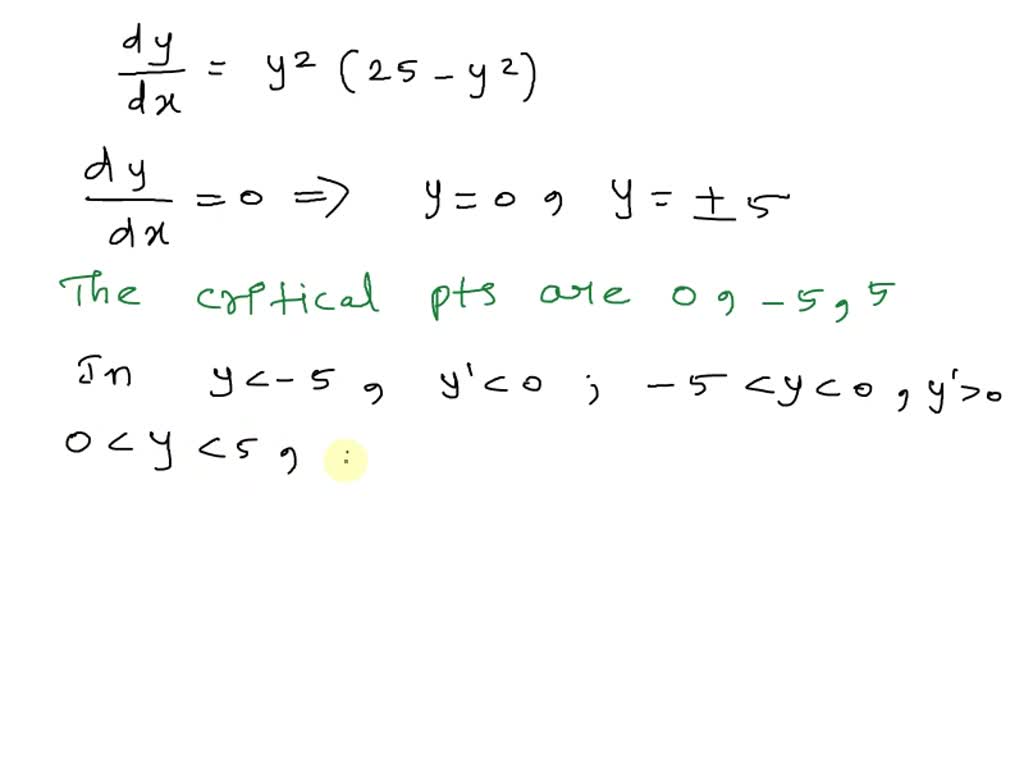 dy/dx = y² (25 - y²)
dy/dx = 0 => y = 0, y = ± 5
The critical pts are 0, -5, 5
In y < - 5, y' < 0 ; - 5 < y < 0, y' > 0
0 < y < 5,